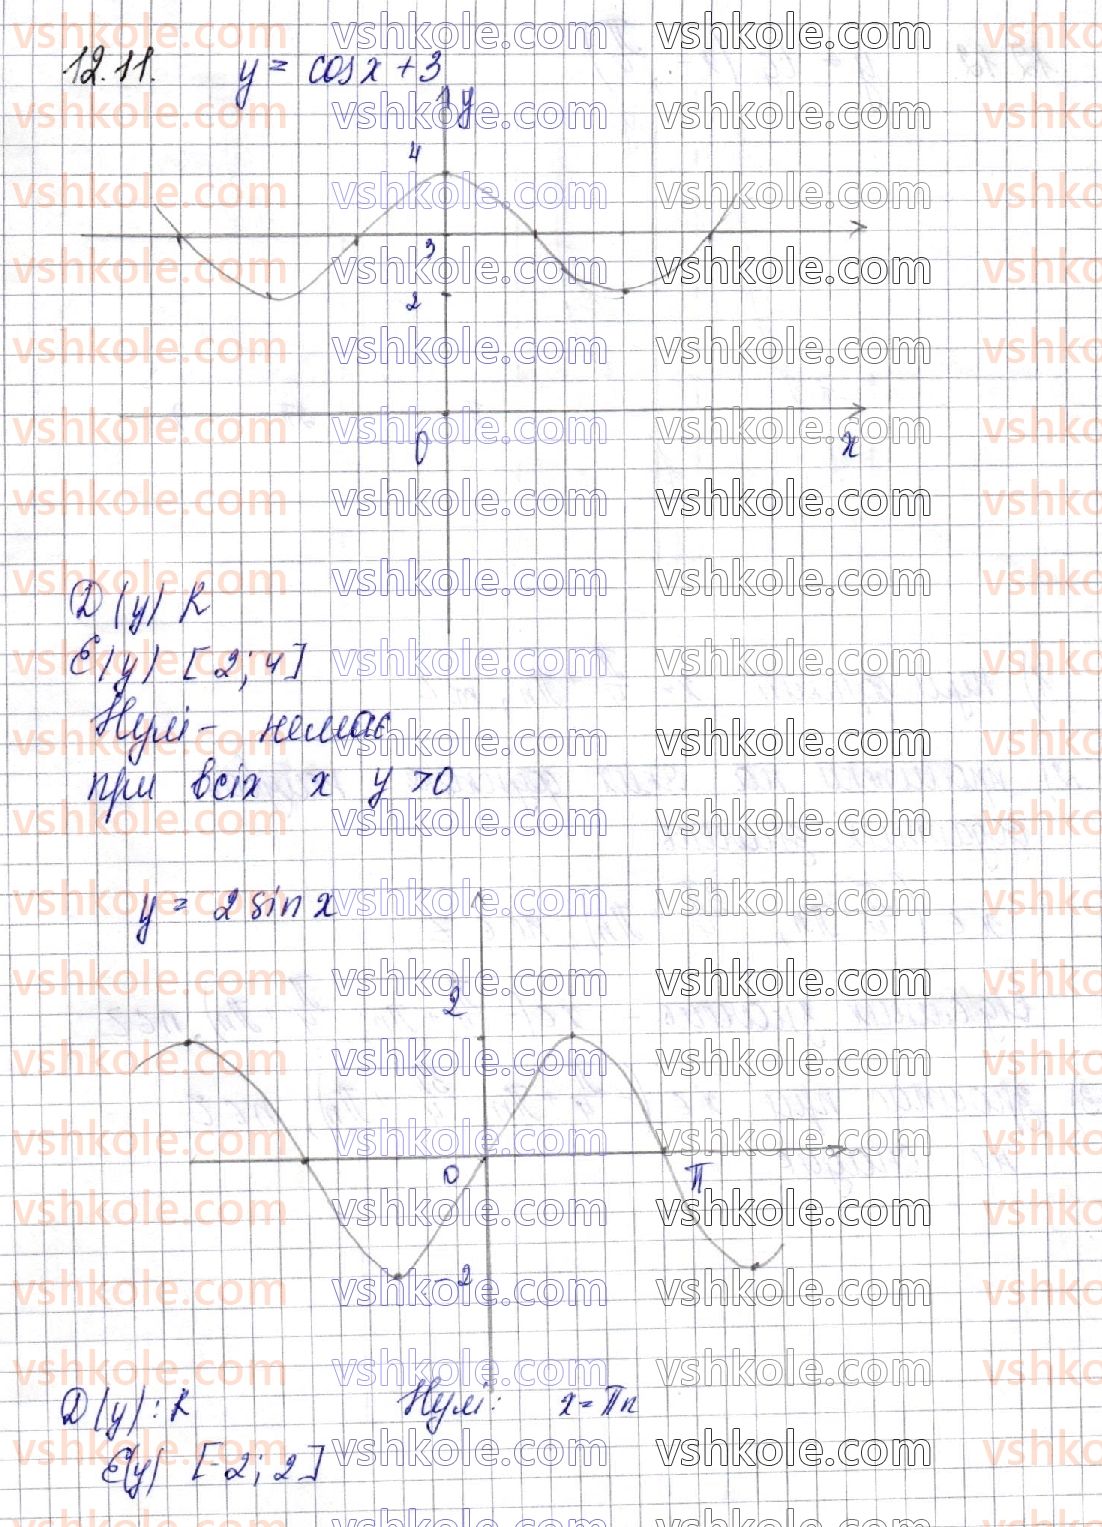 12.11. y = cos x + 3
y
4
3
2
0
x
D(y) R
E(y) [2; 4]
Нулі - немає
при всіх x y > 0
y = 2 sin x
2
0
π
-2
D(y): R Нулі: x = πn
E(y) [-2; 2]
vshkole.com